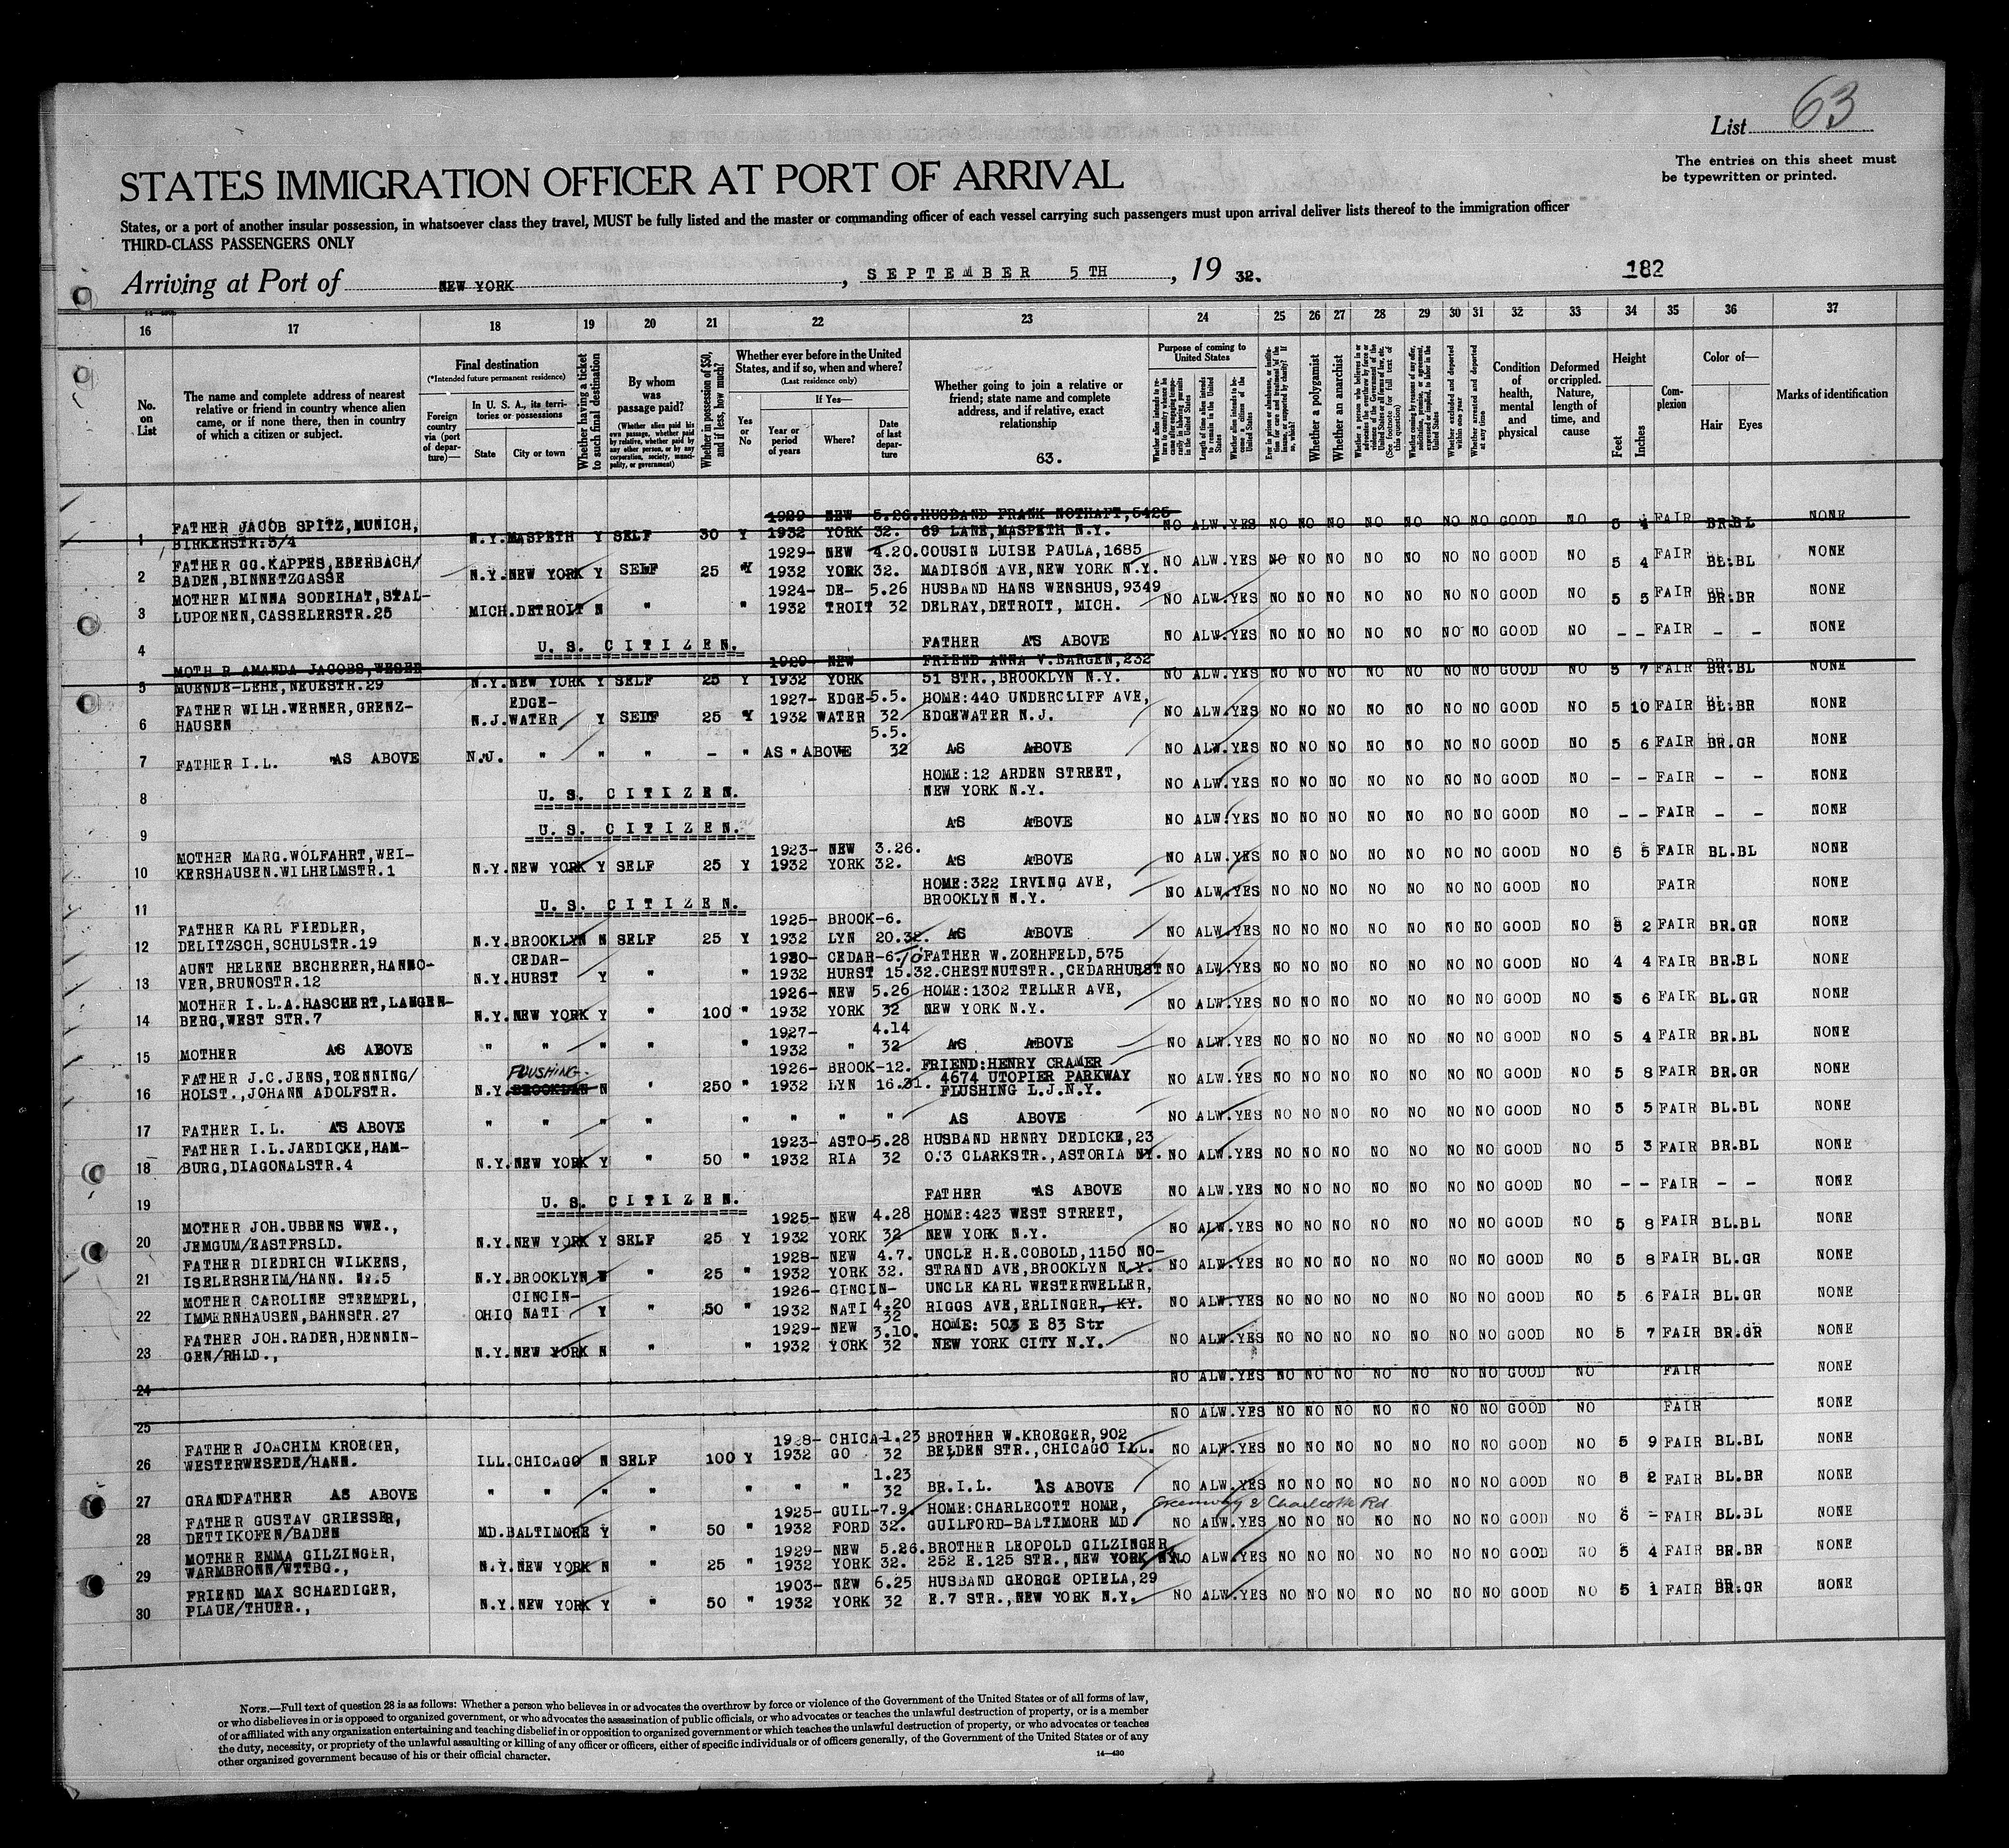 List 63
The entries on this sheet must
be typewritten or printed.
STATES IMMIGRATION OFFICER AT PORT OF ARRIVAL
States, or a port of another insular possession, in whatsoever class they travel, MUST be fully listed and the master or commanding officer of each vessel carrying such passengers must upon arrival deliver lists thereof to the immigration officer
THIRD-CLASS PASSENGERS ONLY
Arriving at Port of NEW YORK, SEPTEMBER 5TH, 19 32.
182
16 17 18 19 20 21 22 23 24 25 26 27 28 29 30 31 32 33 34 35 36 37
No. on List
The name and complete address of nearest relative or friend in country whence alien came, or if none there, then in country of which a citizen or subject.
Final destination
(*Intended future permanent residence)
Foreign country via (port of departure)—
In U. S. A., its territories or possessions
State
City or town
Whether having a ticket to such final destination
By whom was passage paid?
(Whether alien paid his own passage, whether paid by relative, whether paid by any other person, or by any corporation, society, municipality, or government)
Whether in possession of $50, and if less, how much?
Whether ever before in the United States, and if so, when and where?
(Last residence only)
Yes or No
If Yes—
Year or period of years
Where?
Date of last departure
Whether going to join a relative or friend; state name and complete address, and if relative, exact relationship
63.
Purpose of coming to United States
Length of time alien intends to remain in the United States
Whether alien intends to become a citizen of the United States
Whether a polygamist
Whether an anarchist
Whether excluded and deported within one year
Whether arrested and deported at any time
Condition of health, mental and physical
Deformed or crippled. Nature, length of time, and cause
Height
Feet
Inches
Complexion
Color of—
Hair
Eyes
Marks of identification
1 FATHER JACOB SPITZ, MUNICH, BIRKERSTR:3/4 N.Y. MASPETH Y SELF 30 Y 1929- 1932 NEW YORK 5.26. 32. HUSBAND FRANK NOTHAFT, 5425 69 LANE, MASPETH N.Y. NO ALW. YES NO NO NO NO NO NO NO GOOD NO 5 4 FAIR BR. BL NONE
2 FATHER GG. KAPPES, EBERBACH/ BADEN, BINNETZGASSE N.Y. NEW YORK Y SELF 25 Y 1929- 1932 NEW YORK 4.20. 32. COUSIN LUISE PAULA, 1685 MADISON AVE, NEW YORK N.Y. NO ALW. YES NO NO NO NO NO NO NO GOOD NO 5 4 FAIR BL. BL NONE
3 MOTHER MINNA SODEIHAT, STAL- LUPOENEN, CASSELERSTR. 25 MICH. DETROIT N " " 1924- 1932 DE- TROIT 5.26 32 HUSBAND HANS WENSHUS, 9349 DELRAY, DETROIT, MICH. NO ALW. YES NO NO NO NO NO NO NO GOOD NO 5 5 FAIR BR. BR NONE
4 U. S. CITIZEN. FATHER AS ABOVE NO ALW. YES NO NO NO NO NO NO NO GOOD NO - - FAIR - - NONE
5 MOTH R AMANDA JACOBS, WESER MUENDE-LEHE, NEUESTR. 29 N.Y. NEW YORK Y SELF 25 Y 1929 1932 NEW YORK FRIEND ANNA V. BARGEN, 232 51 STR., BROOKLYN N.Y. NO ALW. YES NO NO NO NO NO NO NO GOOD NO 5 7 FAIR BR. BL NONE
6 FATHER WILH. WERNER, GRENZ- HAUSEN N.J. EDGE- WATER Y SELF 25 Y 1927- 1932 EDGE- WATER 5.5. 32 HOME: 440 UNDERCLIFF AVE, EDGEWATER N.J. NO ALW. YES NO NO NO NO NO NO NO GOOD NO 5 10 FAIR BL. BR NONE
7 FATHER I.L. AS ABOVE N.J. " " " - " AS ABOVE 5.5. 32 AS ABOVE NO ALW. YES NO NO NO NO NO NO NO GOOD NO 5 6 FAIR BR. GR NONE
8 U. S. CITIZEN. HOME: 12 ARDEN STREET, NEW YORK N.Y. NO ALW. YES NO NO NO NO NO NO NO GOOD NO - - FAIR - - NONE
9 U. S. CITIZEN. AS ABOVE NO ALW. YES NO NO NO NO NO NO NO GOOD NO - - FAIR - - NONE
10 MOTHER MARG. WOLFAHRT, WEI- KERSHAUSEN. WILHELMSTR. 1 N.Y. NEW YORK Y SELF 25 Y 1923- 1932 NEW YORK 3.26. 32. AS ABOVE NO ALW. YES NO NO NO NO NO NO NO GOOD NO 5 5 FAIR BL. BL NONE
11 U. S. CITIZEN. HOME: 322 IRVING AVE, BROOKLYN N.Y. NO ALW. YES NO NO NO NO NO NO NO GOOD NO FAIR NONE
12 FATHER KARL FIEDLER, DELITZSCH, SCHULSTR. 19 N.Y. BROOKLYN N SELF 25 Y 1925- 1932 BROOK- LYN 6. 20.32. AS ABOVE NO ALW. YES NO NO NO NO NO NO NO GOOD NO 5 2 FAIR BR. GR NONE
13 AUNT HELENE BECHERER, HANNO- VER, BRUNOSTR. 12 N.Y. CEDAR- HURST Y " " 1930- 1932 CEDAR- HURST 6. 15.32. FATHER W. ZOEHFELD, 575 CHESTNUTSTR., CEDARHURST NO ALW. YES NO NO NO NO NO NO NO GOOD NO 4 4 FAIR BR. BL NONE
14 MOTHER I.L.A. HASCHERT, LANGEN- BERG, WEST STR. 7 N.Y. NEW YORK Y " 100 " 1926- 1932 NEW YORK 5.26 32 HOME: 1302 TELLER AVE, NEW YORK N.Y. NO ALW. YES NO NO NO NO NO NO NO GOOD NO 5 6 FAIR BL. GR NONE
15 MOTHER AS ABOVE " " " " " 1927- 1932 " 4.14 32 AS ABOVE NO ALW. YES NO NO NO NO NO NO NO GOOD NO 5 4 FAIR BR. BL NONE
16 FATHER J.C. JENS, TOENNING/ HOLST., JOHANN ADOLFSTR. N.Y. BROOKLYN FLUSHING. N " 250 " 1926- 1932 BROOK- LYN 12. 16.31. FRIEND: HENRY CRAMER 4674 UTOPIER PARKWAY FLUSHING L.J.N.Y. NO ALW. YES NO NO NO NO NO NO NO GOOD NO 5 8 FAIR BR. GR NONE
17 FATHER I.L. AS ABOVE " " " " " " " " AS ABOVE NO ALW. YES NO NO NO NO NO NO NO GOOD NO 5 5 FAIR BL. BL NONE
18 FATHER I.L. JAEDICKE, HAM- BURG, DIAGONALSTR. 4 N.Y. NEW YORK Y " 50 " 1923- 1932 ASTO- RIA 5.28 32 HUSBAND HENRY DEDICKE, 23 0.3 CLARKSTR., ASTORIA NY. NO ALW. YES NO NO NO NO NO NO NO GOOD NO 5 3 FAIR BR. BL NONE
19 U. S. CITIZEN. FATHER AS ABOVE NO ALW. YES NO NO NO NO NO NO NO GOOD NO - - FAIR - - NONE
20 MOTHER JOH. UBBENS WWE., JEMGUM/EASTFRSLD. N.Y. NEW YORK Y SELF 25 Y 1925- 1932 NEW YORK 4.28 32 HOME: 423 WEST STREET, NEW YORK N.Y. NO ALW. YES NO NO NO NO NO NO NO GOOD NO 5 8 FAIR BL. BL NONE
21 FATHER DIEDRICH WILKENS, ISELERSHEIM/HANN. NR.5 N.Y. BROOKLYN N " 25 " 1928- 1932 NEW YORK 4.7. 32. UNCLE H.E. COBOLD, 1150 NO- STRAND AVE, BROOKLYN N.Y. NO ALW. YES NO NO NO NO NO NO NO GOOD NO 5 8 FAIR BL. GR NONE
22 MOTHER CAROLINE STREMPEL, IMMERNHAUSEN, BAHNSTR. 27 OHIO CINCIN- NATI Y " 50 " 1926- 1932 CINCIN- NATI 4.20 32 UNCLE KARL WESTERWELLER, RIGGS AVE, ERLINGER, KY. NO ALW. YES NO NO NO NO NO NO NO GOOD NO 5 6 FAIR BL. GR NONE
23 FATHER JOH. RADER, HOENNIN- GEN/RHLD., N.Y. NEW YORK N " " 1929- 1932 NEW YORK 3.10. 32 HOME: 503 E 83 Str NEW YORK CITY N.Y. NO ALW. YES NO NO NO NO NO NO NO GOOD NO 5 7 FAIR BR. GR NONE
24 NO ALW. YES NO NO NO NO NO NO NO GOOD NO FAIR NONE
25 NO ALW. YES NO NO NO NO NO NO NO GOOD NO FAIR NONE
26 FATHER JOACHIM KROEGER, WESTERWESEDE/HANN. ILL. CHICAGO N SELF 100 Y 1928- 1932 CHICA- GO 1.23 32 BROTHER W. KROEGER, 902 BELDEN STR., CHICAGO ILL. NO ALW. YES NO NO NO NO NO NO NO GOOD NO 5 9 FAIR BL. BL NONE
27 GRANDFATHER AS ABOVE " " " " " " " " 1.23 32 BR. I.L. AS ABOVE NO ALW. YES NO NO NO NO NO NO NO GOOD NO 5 2 FAIR BL. BR NONE
28 FATHER GUSTAV GRIESSER, DETTIKOFEN/BADEN MD. BALTIMORE Y " 50 " 1925- 1932 GUIL- FORD 7.9. 32. HOME: CHARLECOTT HOME, GUILFORD-BALTIMORE MD. Greenway & Charlcotte Rd. NO ALW. YES NO NO NO NO NO NO NO GOOD NO 6 - FAIR BL. BL NONE
29 MOTHER EMMA GILZINGER, WARMBRONN/WTTBG., N.Y. NEW YORK N " 25 " 1929- 1932 NEW YORK 5.26. 32. BROTHER LEOPOLD GILZINGER 252 E. 125 STR., NEW YORK NY. NO ALW. YES NO NO NO NO NO NO NO GOOD NO 5 4 FAIR BR. BR NONE
30 FRIEND MAX SCHAEDIGER, PLAUE/THUER., N.Y. NEW YORK Y " 50 " 1903- 1932 NEW YORK 6.25 32 HUSBAND GEORGE OPIELA, 29 E. 7 STR., NEW YORK N.Y. NO ALW. YES NO NO NO NO NO NO NO GOOD NO 5 1 FAIR BR. GR NONE
NOTE.—Full text of question 28 is as follows: Whether a person who believes in or advocates the overthrow by force or violence of the Government of the United States or of all forms of law,
or who disbelieves in or is opposed to organized government, or who advocates the assassination of public officials, or who advocates or teaches the unlawful destruction of property, or is a member
of or affiliated with any organization entertaining and teaching disbelief in or opposition to organized government or which teaches the unlawful destruction of property, or who advocates or teaches
the duty, necessity, or propriety of the unlawful assaulting or killing of any officer or officers, either of specific individuals or of officers generally, of the Government of the United States or of any
other organized government because of his or their official character.
14—430